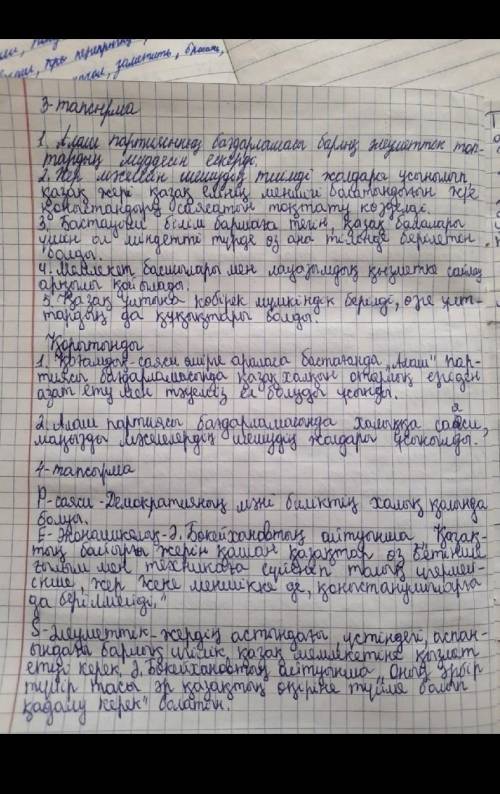 заменить, бросить,
3-тапсырма
1. Алаш партиясының бағдарламасы барлық әлеуметтік топ-
тардың мүддесін ескерді.
2. Жер мәселесін шешудің тиімді жолдары ұсынылып,
қазақ жері қазақ елінің меншігі болатындығын және
қоныстандыру саясатын тоқтату көзделді.
3. Бастауыш білім бармаға тегін, қазақ балалары
үшін ол міндетті түрде өз ана тілінде берілетін
болды.
4. Мемлекет басшылары мен лауазымдық қызметке сайлау
арқылы қойылады.
5. Қазақ ұлтына көбірек мүмкіндік берілді, өзге ұлт-
тардың да құқықтары болды.
Қорытынды
1. Қоғамдық-саяси өмірге араласа бастағанда "Алаш" пар-
тиясы бағдарламасында қазақ халқын отарлық езгіден
азат ету мен тәуелсіз ел болуды ұсынды.
2. Алаш партиясы бағдарламасында халыққа саяси,
маңызды мәселелердің шешудің жолдары ұсынылды.
4-тапсырма
P-саяси-Демократияның мәні биліктің халық қолында
болуы.
E-Экономикалық-Ә. Бөкейхановтың айтуынша "Қазақ-
тың байырғы жерін қашан қазақтар өз бетінше
ғылым мен техникаға сүйеніп толық игермей-
інше, жер жеке меншікке де, қоныстанушыларға
да берілмейді,"
S-Әлеуметтік-жердің астындағы, үстіндегі, аспан-
ындағы барлық игілік, қазақ мемлекетіне қызмет
етуі керек. Ә. Бөкейхановтың айтуынша "Оның әрбір
түйір тасы әр қазақтың өңіріне түйме болып
қадалу керек" болатын.